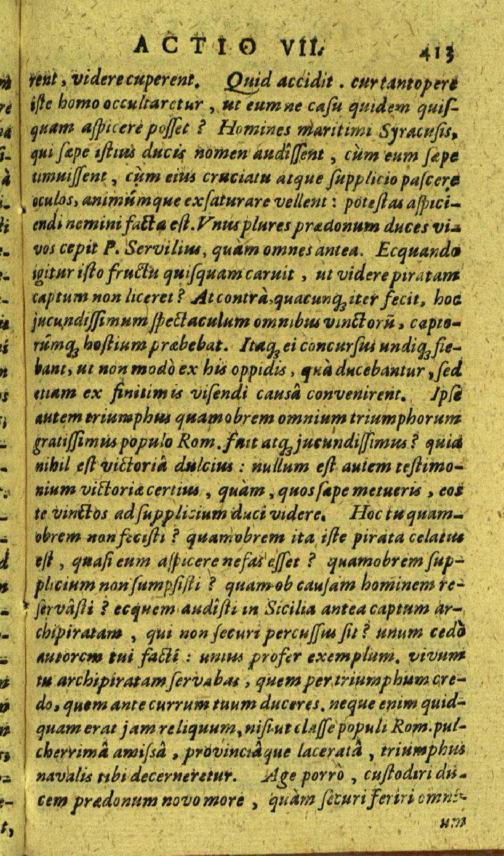 ACTIO VII. 413
rent, videre cuperent. Quid accidit. cur tantopere
iste homo occultaretur, ut eum ne casu quidem quis-
quam aspicere posset? Homines maritimi Syracusis,
qui sæpe istius ducis nomen audîssent, cùm eum sæpe
timuissent, cùm eius cruciatu atque supplicio pascere
oculos, animúmque exsaturare vellent: potestas aspici-
endi nemini facta est. Vnus plures prædonum duces vi-
vos cepit P. Servilius, quàm omnes antea. Ecquando
igitur isto fructu quisquam caruit, ut videre piratam
captum non liceret? At contrà, quacunq; iter fecit, hoc
jucundissimum spectaculum omnibus vinctorũ, capto-
rúmq; hostium præbebat. Itaq; ei concursus undiq; fie-
bant, ut non modò ex his oppidis, quà ducebantur, sed
etiam ex finitimis visendi causâ convenirent. Ipse
autem triumphus quamobrem omnium triumphorum
gratissimus populo Rom. fuit atq; jucundissimus? quia
nihil est victoriâ dulcius: nullum est autem testimo-
nium victoriæ certius, quàm, quos sæpe metueris, eos
te vinctos ad supplicium duci videre. Hoc tu quam-
obrem non fecisti? quamobrem ita iste pirata celatus
est, quasi eum aspicere nefas esset? quamobrem sup-
plicium non sumpsisti? quam ob causam hominem re-
servâsti? ecquem audîsti in Sicilia antea captum ar-
chipiratam, qui non securi percussus sit? unum cedò
autorem tui facti: unius profer exemplum. vivum
tu archipiratam servabas, quem per triumphum cre-
do, quem ante currum tuum duceres. neque enim quid-
quam erat jam reliquum, nisi ut classe populi Rom. pul-
cherrimâ amissâ, provinciâque laceratâ, triumphus
navalis tibi decerneretur. Age porrò, custodiri du-
cem prædonum novo more, quàm securi feriri omni-
um